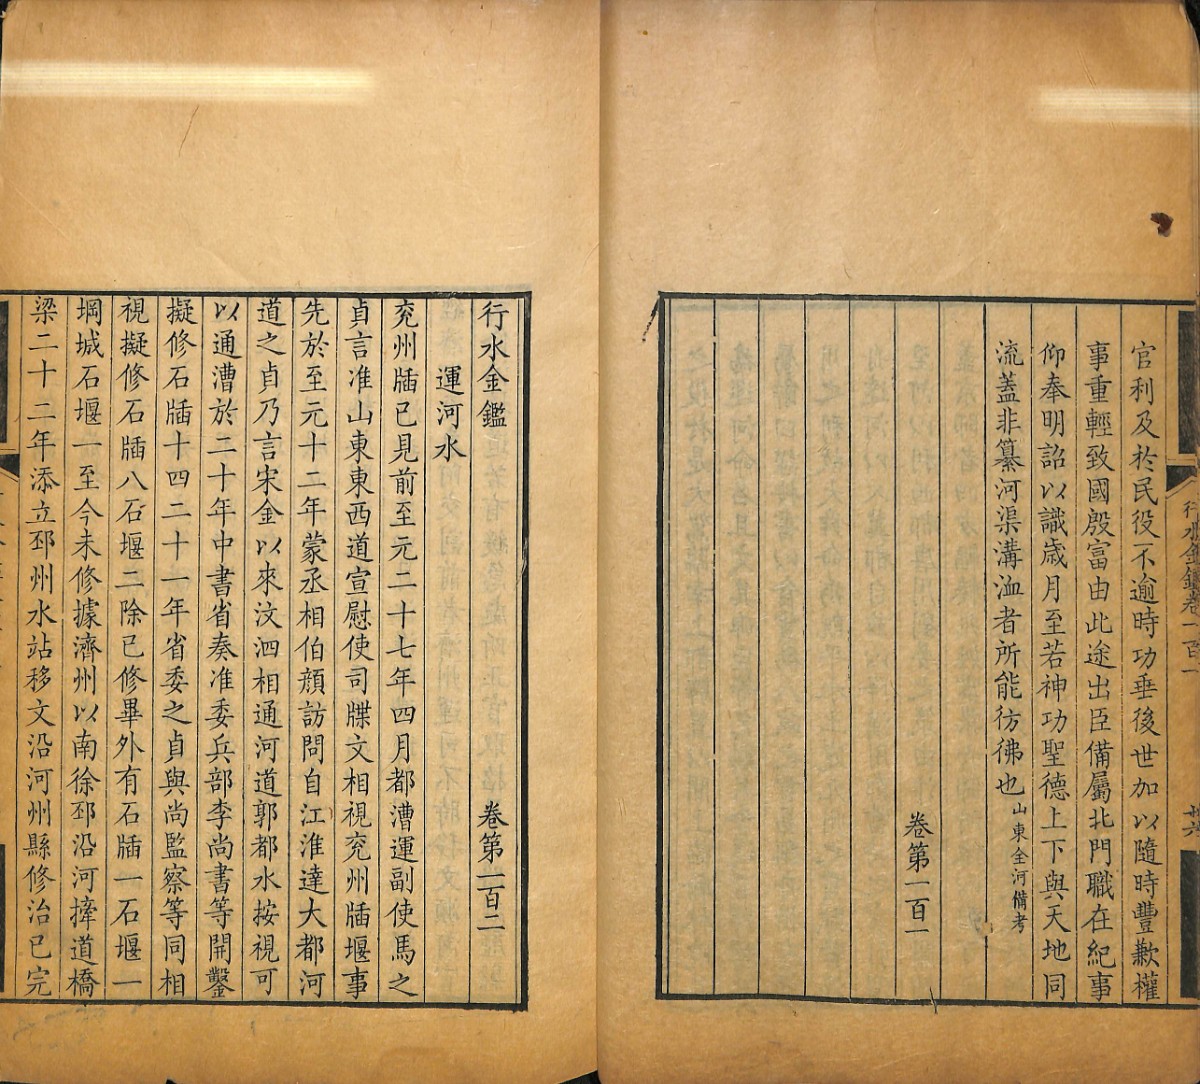 行水金鑑卷一百一
廿六
官利及於民役不逾時功垂後世加以隨時豐歉權
事重輕致國殷富由此途出臣備屬北門職在紀事
仰奉明詔以識歲月至若神功聖德上下與天地同
流蓋非纂河渠溝洫者所能彷彿也山東全河備考
卷第一百一
行水金鑑 卷第一百二
運河水
兖州牐已見前至元二十七年四月都漕運副使馬之
貞言准山東東西道宣慰使司牒文相視兖州牐堰事
先於至元十二年蒙丞相伯顔訪問自江淮達大都河
道之貞乃言宋金以來汶泗相通河道郭都水按視可
以通漕於二十年中書省奏准委兵部李尚書等開鑿
擬修石牐十四二十一年省委之貞與尚監察等同相
視擬修石牐八石堰二除已修畢外有石牐一石堰一
堈城石堰一至今未修據濟州以南徐邳沿河撁道橋
梁二十二年添立邳州水站移文沿河州縣修治已完